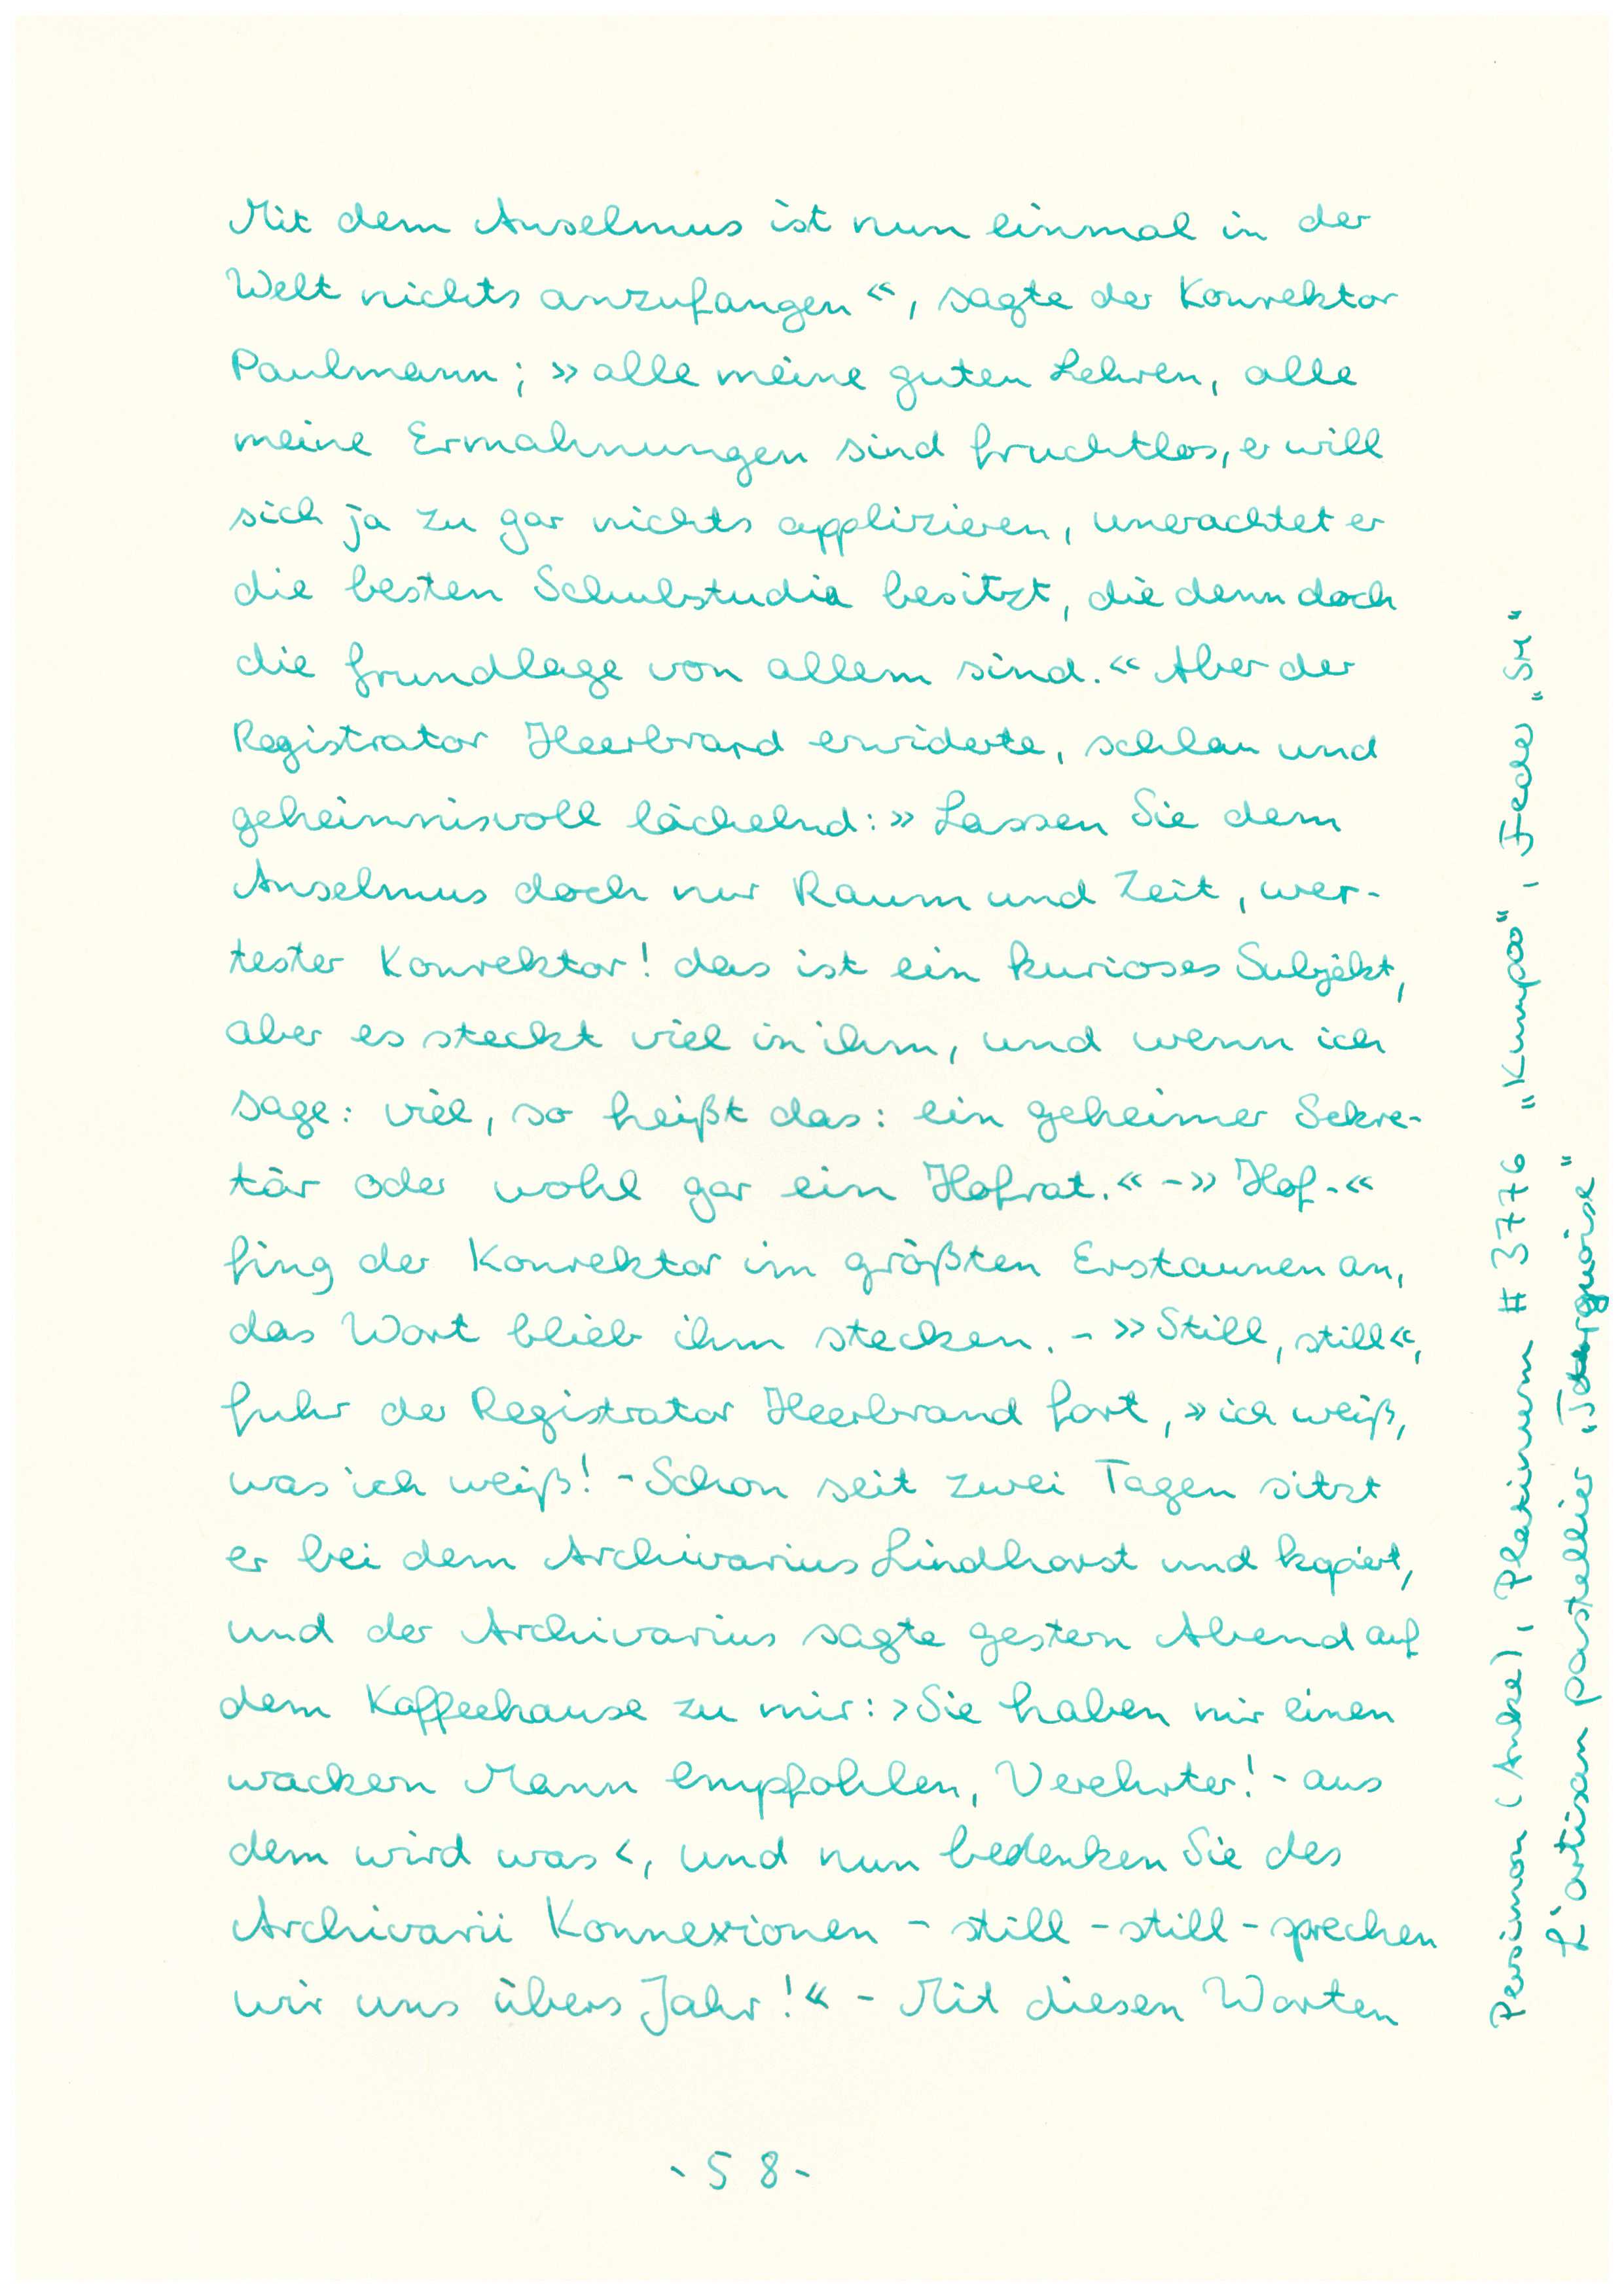 Mit dem Anselmus ist nun einmal in der
Welt nichts anzufangen«, sagte der Konrektor
Paulmann; »alle meine guten Lehren, alle
meine Ermahnungen sind fruchtlos, er will
sich ja zu gar nichts applizieren, unerachtet er
die besten Schulstudia besitzt, die denn doch
die Grundlage von allem sind.« Aber der
Registrator Heerbrand erwiderte, schlau und
geheimnisvoll lächelnd: »Lassen Sie dem
Anselmus doch nur Raum und Zeit, wer-
tester Konrektor! das ist ein kurioses Subjekt,
aber es steckt viel in ihm, und wenn ich
sage: viel, so heißt das: ein geheimer Sekre-
tär oder wohl gar ein Hofrat.« -» Hof-«
fing der Konrektor im größten Erstaunen an,
das Wort blieb ihm stecken. - »Still, still«,
fuhr der Registrator Heerbrand fort, »ich weiß,
was ich weiß! - Schon seit zwei Tagen sitzt
er bei dem Archivarius Lindhorst und kopiert,
und der Archivarius sagte gestern Abend auf
dem Kaffeehause zu mir: ›Sie haben mir einen
wackern Mann empfohlen, Verehrter! - aus
dem wird was‹, und nun bedenken Sie des
Archivarii Konnexionen - still - still - sprechen
wir uns übers Jahr!« - Mit diesen Worten
- 58 -
Persimon (Anke), Platinum # 3776 "Kumpoo", Feder „SM"
L'artisan pastellier „Tourquoise"